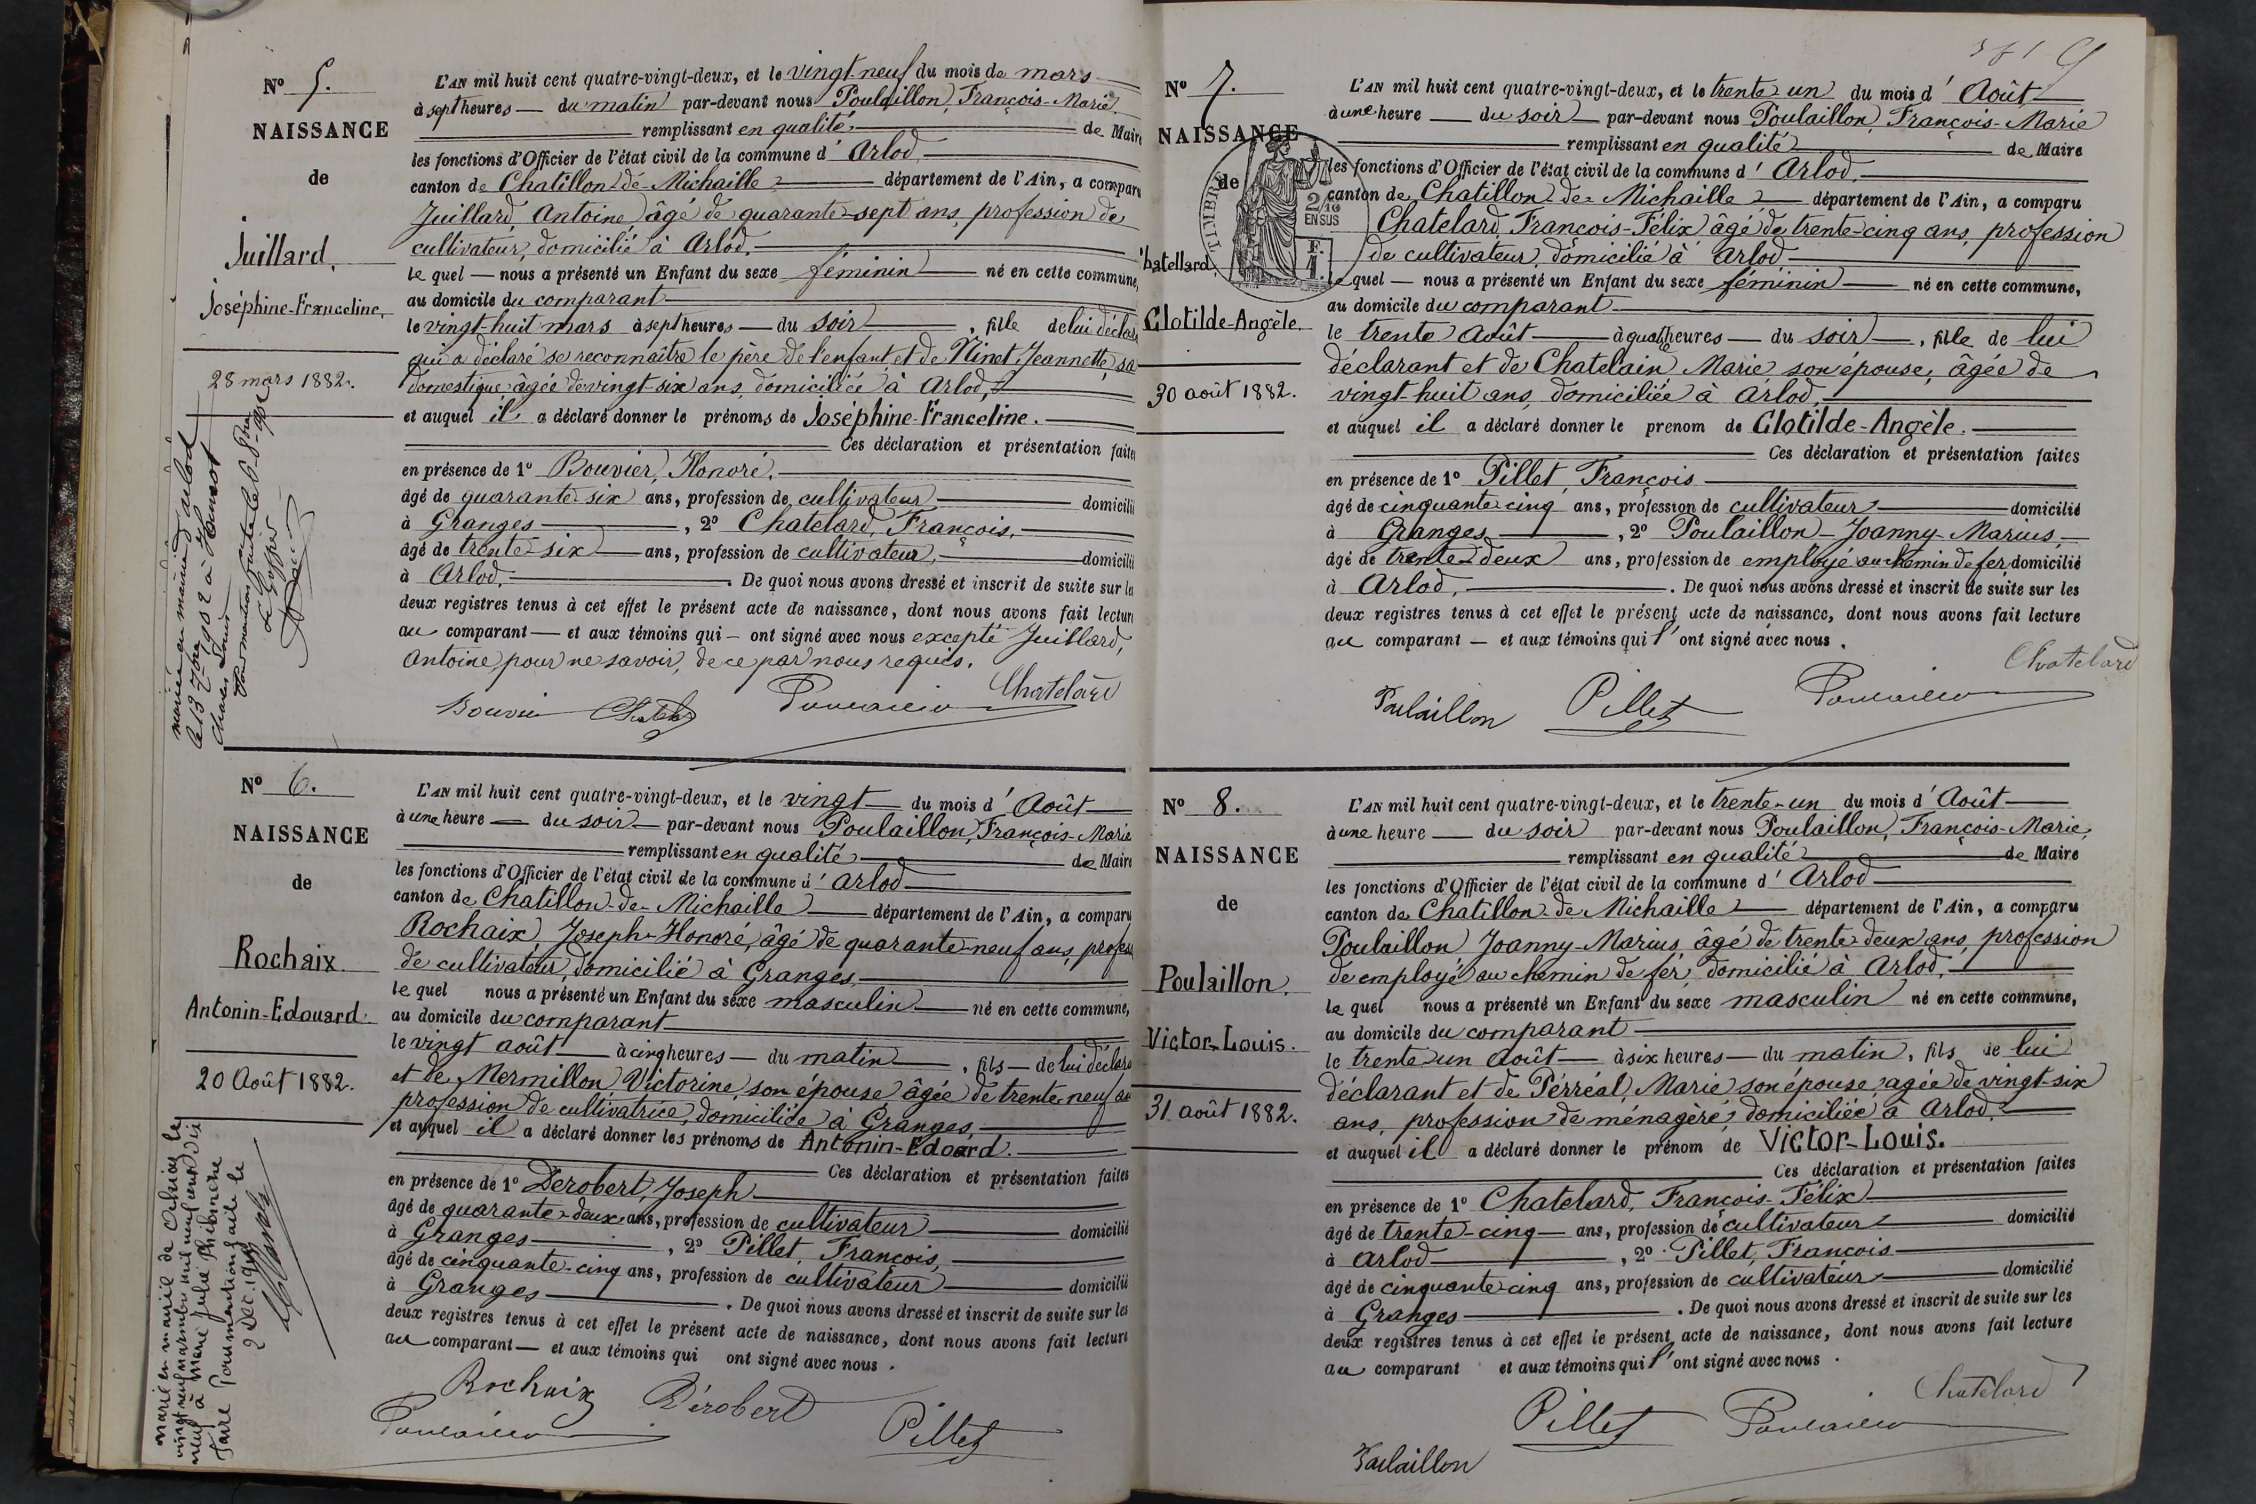 N° 5.
NAISSANCE
de
Juillard,
Joséphine-Franceline,
28 mars 1882.
L'AN mil huit cent quatre-vingt-deux, et le vingt-neuf du mois de mars
à sept heures du matin par-devant nous Poulaillon, François-Marie,
remplissant en qualité de Maire
les fonctions d'Officier de l'état civil de la commune d' Arlod,
canton de Chatillon-de-Michaille département de l'Ain, a comparu
Juillard, Antoine, âgé de quarante-sept ans, profession de
cultivateur, domicilié à Arlod,
le quel nous a présenté un Enfant du sexe féminin né en cette commune,
au domicile du comparant
le vingt-huit mars à sept heures du soir, fille de lui décla
qui a déclaré se reconnaître le père de l'enfant, et de Ninet, Jeannette, sa
domestique, âgée de vingt-six ans, domiciliée à Arlod,
et auquel il a déclaré donner le prénoms de Joséphine-Franceline.
Ces déclaration et présentation faites
en présence de 1° Bouvier, Honoré,
âgé de quarante-six ans, profession de cultivateur domicilié
à Granges, 2° Chatelard, François,
âgé de trente-six ans, profession de cultivateur, domicilié
à Arlod. De quoi nous avons dressé et inscrit de suite sur les
deux registres tenus à cet effet le présent acte de naissance, dont nous avons fait lecture
au comparant et aux témoins qui ont signé avec nous excepté Juillard,
Antoine, pour ne savoir, de ce par nous requis.
Bouvier Poulaillon Chatelard
mariée en mairie d'Arlod
le 13 7bre 1902 à
Charles
Pour mention faite le
Le Greffier
N° 6.
NAISSANCE
de
Rochaix
Antonin-Edouard.
20 Août 1882.
L'AN mil huit cent quatre-vingt-deux, et le vingt du mois d' Août
à une heure du soir par-devant nous Poulaillon, François-Marie
remplissant en qualité de Maire
les fonctions d'Officier de l'état civil de la commune d' Arlod
canton de Chatillon-de-Michaille département de l'Ain, a comparu
Rochaix, Joseph-Honoré, âgé de quarante-neuf ans, profess
de cultivateur, domicilié à Granges,
le quel nous a présenté un Enfant du sexe masculin né en cette commune,
au domicile du comparant
le vingt août à cinq heures du matin, fils de lui décla
et de Mermillon, Victorine, son épouse âgée de trente-neuf an
profession de cultivatrice, domiciliée à Granges,
et auquel il a déclaré donner les prénoms de Antonin-Edoard.
Ces déclaration et présentation faites
en présence de 1° Derobert, Joseph
âgé de quarante-deux ans, profession de cultivateur domicilié
à Granges, 2° Pillet, François,
âgé de cinquante-cinq ans, profession de cultivateur domicilié
à Granges. De quoi nous avons dressé et inscrit de suite sur les
deux registres tenus à cet effet le présent acte de naissance, dont nous avons fait lecture
au comparant et aux témoins qui ont signé avec nous.
Rochaix Dérobert
Poulaillon Pillet
marié en mairie de
vingt neuf novembre mil neuf cent dix
neuf à Marie Julie Philomène
Favre Pour mention faite le
2 Dec. 1919
N° 7.
NAISSANCE
de
TIMBRE
2/10
EN SUS
F.
1.
hatellard,
Clotilde-Angèle.
30 août 1882.
L'AN mil huit cent quatre-vingt-deux, et le trente-un du mois d' Août
à une heure du soir par-devant nous Poulaillon, François-Marie
remplissant en qualité de Maire
les fonctions d'Officier de l'état civil de la commune d' Arlod,
canton de Chatillon-de-Michaille département de l'Ain, a comparu
Chatelard, François-Félix, âgé de trente-cinq ans, profession
de cultivateur, domicilié à Arlod
le quel nous a présenté un Enfant du sexe féminin né en cette commune,
au domicile du comparant
le trente Août à quatre heures du soir, fille de lui
déclarant et de Chatelain, Marie son épouse, âgée de
vingt-huit ans, domiciliée à Arlod,
et auquel il a déclaré donner le prenom de Clotilde-Angèle.
Ces déclaration et présentation faites
en présence de 1° Pillet, François
âgé de cinquante-cinq ans, profession de cultivateur domicilié
à Granges, 2° Poulaillon Joanny-Marius,
âgé de trente-deux ans, profession de employé au chemin de fer, domicilié
à Arlod,. De quoi nous avons dressé et inscrit de suite sur les
deux registres tenus à cet effet le présent acte de naissance, dont nous avons fait lecture
au comparant et aux témoins qui l'ont signé avec nous.
Chatelard
Poulaillon Pillet Poulaillon
N° 8.
NAISSANCE
de
Poulaillon,
Victor-Louis.
31 août 1882.
L'AN mil huit cent quatre-vingt-deux, et le trente-un du mois d' Août
à une heure du soir par-devant nous Poulaillon, François-Marie,
remplissant en qualité de Maire
les fonctions d'Officier de l'état civil de la commune d' Arlod
canton de Chatillon-de-Michaille département de l'Ain, a comparu
Poulaillon Joanny-Marius, âgé de trente-deux ans, profession
de employé au chemin de fer, domicilié à Arlod,
le quel nous a présenté un Enfant du sexe masculin né en cette commune,
au domicile du comparant
le trente-un Août à six heures du matin, fils de lui
déclarant et de Pérréal, Marie son épouse, agée de vingt-six
ans, profession de ménagère, domiciliée à Arlod,
et auquel il a déclaré donner le prénom de Victor-Louis.
Ces déclaration et présentation faites
en présence de 1° Chatelard, François-Félix
âgé de trente-cinq ans, profession de cultivateur domicilié
à Arlod, 2° Pillet, François
âgé de cinquante-cinq ans, profession de cultivateur domicilié
à Granges. De quoi nous avons dressé et inscrit de suite sur les
deux registres tenus à cet effet le présent acte de naissance, dont nous avons fait lecture
au comparant et aux témoins qui l'ont signé avec nous.
Chatelard
Pillet Poulaillon
Poulaillon